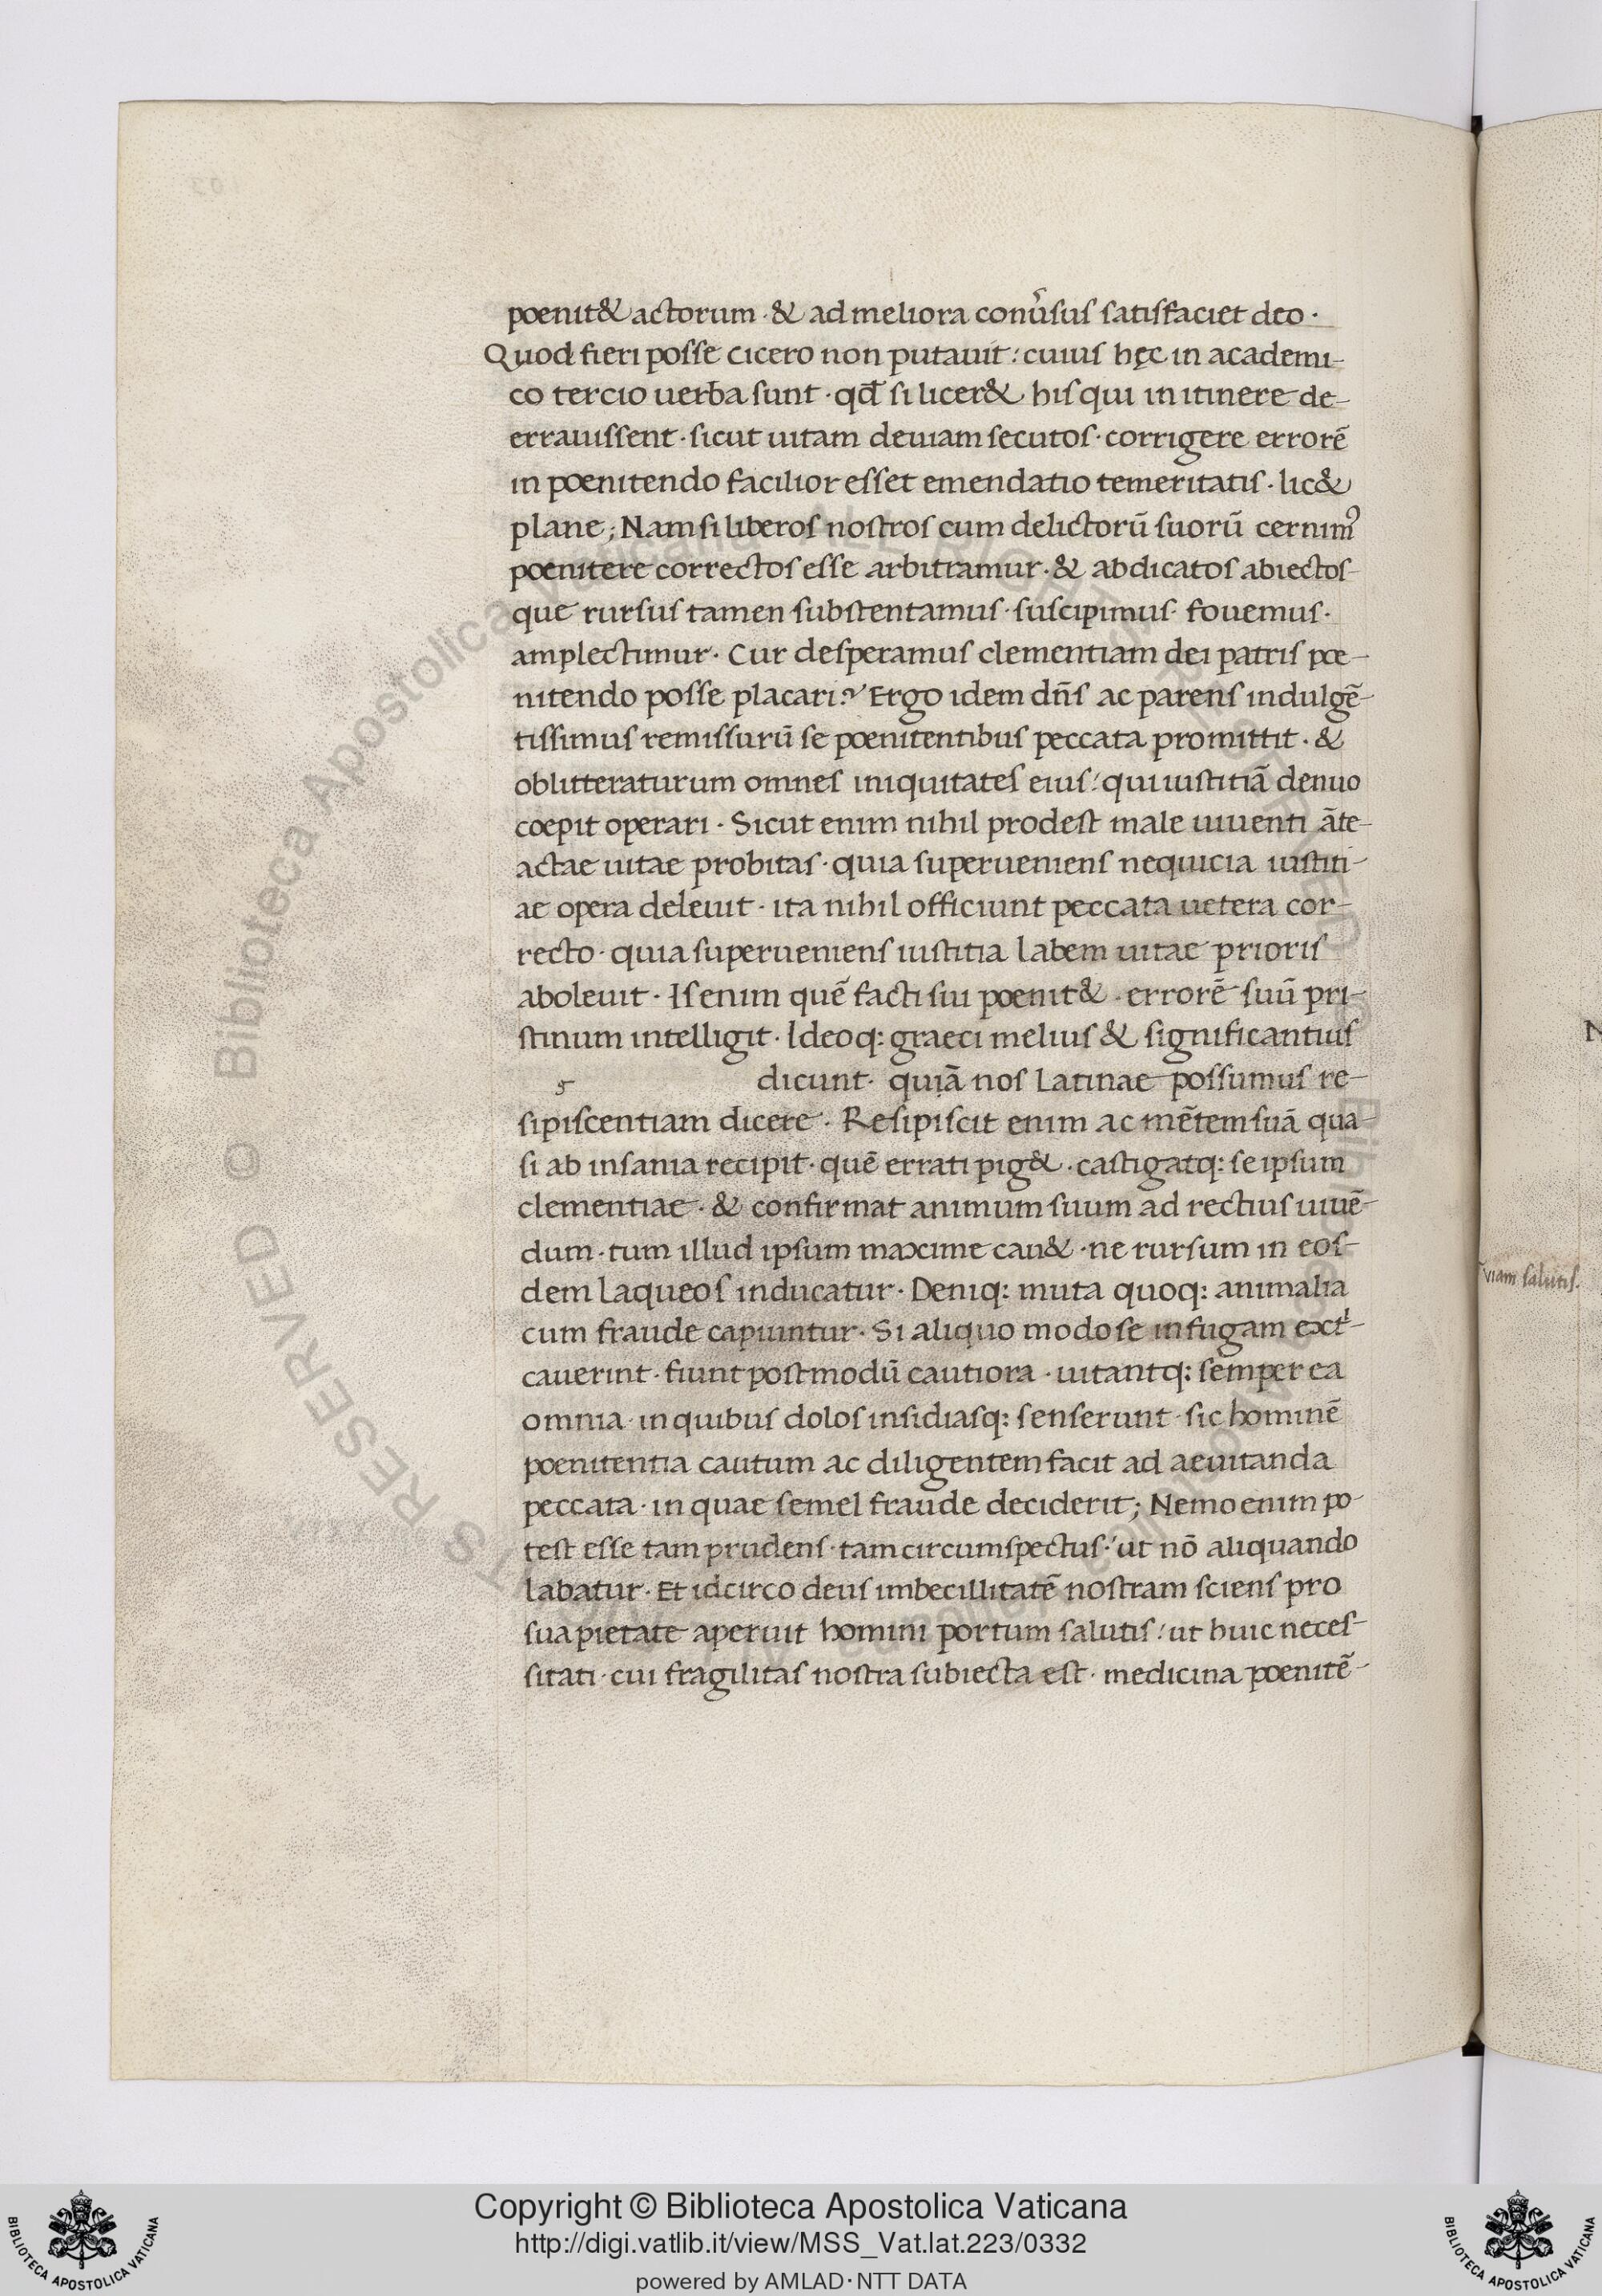 poenit& actorum · & ad meliora conũsus satisfaciet deo ·
Quod fieri posse cicero non putauit : cuius hęc in academi-
co tercio uerba sunt · qđ si licer& his qui in itinere de-
errauissent · sicut uitam deuiam secutos · corrigere errorē
in poenitendo facilior esset emendatio temeritatis · lic&
plane ; Nam si liberos nostros cum delictorũ suorũ cernimꝰ
poenitere correctos esse arbitramur · & abdicatos abiectos-
que rursus tamen substentamus · suscipimus · fouemus ·
amplectimur · Cur desperamus clementiam dei patris poe-
nitendo posse placari ? Ergo idem dñs ac parens indulgē-
tissimus remissurũ se poenitentibus peccata promittit · &
oblitteraturum omnes iniquitates eius : qui iustitiā denuo
coepit operari · Sicut enim nihil prodest male uiuenti āte-
actae uitae probitas · quia superueniens nequicia iustiti-
ae opera deleuit · ita nihil officiunt peccata uetera cor-
recto · quia superueniens iustitia labem uitae prioris
aboleuit · Is enim quē facti sui poenit& · errorē suũ pri-
stinum intelligit · Ideoq: graeci melius & significantius
dicunt · quiā nos Latinae possumus re-
sipiscentiam dicere · Resipiscit enim ac mētem suā qua-
si ab insania recipit · quē errati pig& · castigatq: se ipsum
clementiae · & confirmat animum suum ad rectius uiuē-
dum · tum illud ipsum maxime cau& · ne rursum in eos-
dem laqueos inducatur · Deniq: muta quoq: animalia
cum fraude capiuntur · Si aliquo modo se in fugamext-
cauerint · fiunt postmodũ cautiora · uitantq: semper ea
omnia · in quibus dolos insidiasq: senserunt · sic hominē
poenitentia cautum ac diligentem facit ad aeuitanda
peccata · in quae semel fraude deciderit ; Nemo enim po-
test esse tam prudens · tam circumspectus : ut nō aliquando
labatur · Et idcirco deus imbecillitatē nostram sciens pro
sua pietate aperuit homini portum salutis : ut huic neces-
sitati · cui fragilitas nostra subiecta est · medicina poenitē-
viam salutis.
N
© Biblioteca Apostolica Vaticana ALL RIGHTS RESERVED
Copyright © Biblioteca Apostolica Vaticana
http://digi.vatlib.it/view/MSS_Vat.lat.223/0332
powered by AMLAD·NTT DATA
BIBLIOTECA APOSTOLICA VATICANA
BIBLIOTECA APOSTOLICA VATICANA